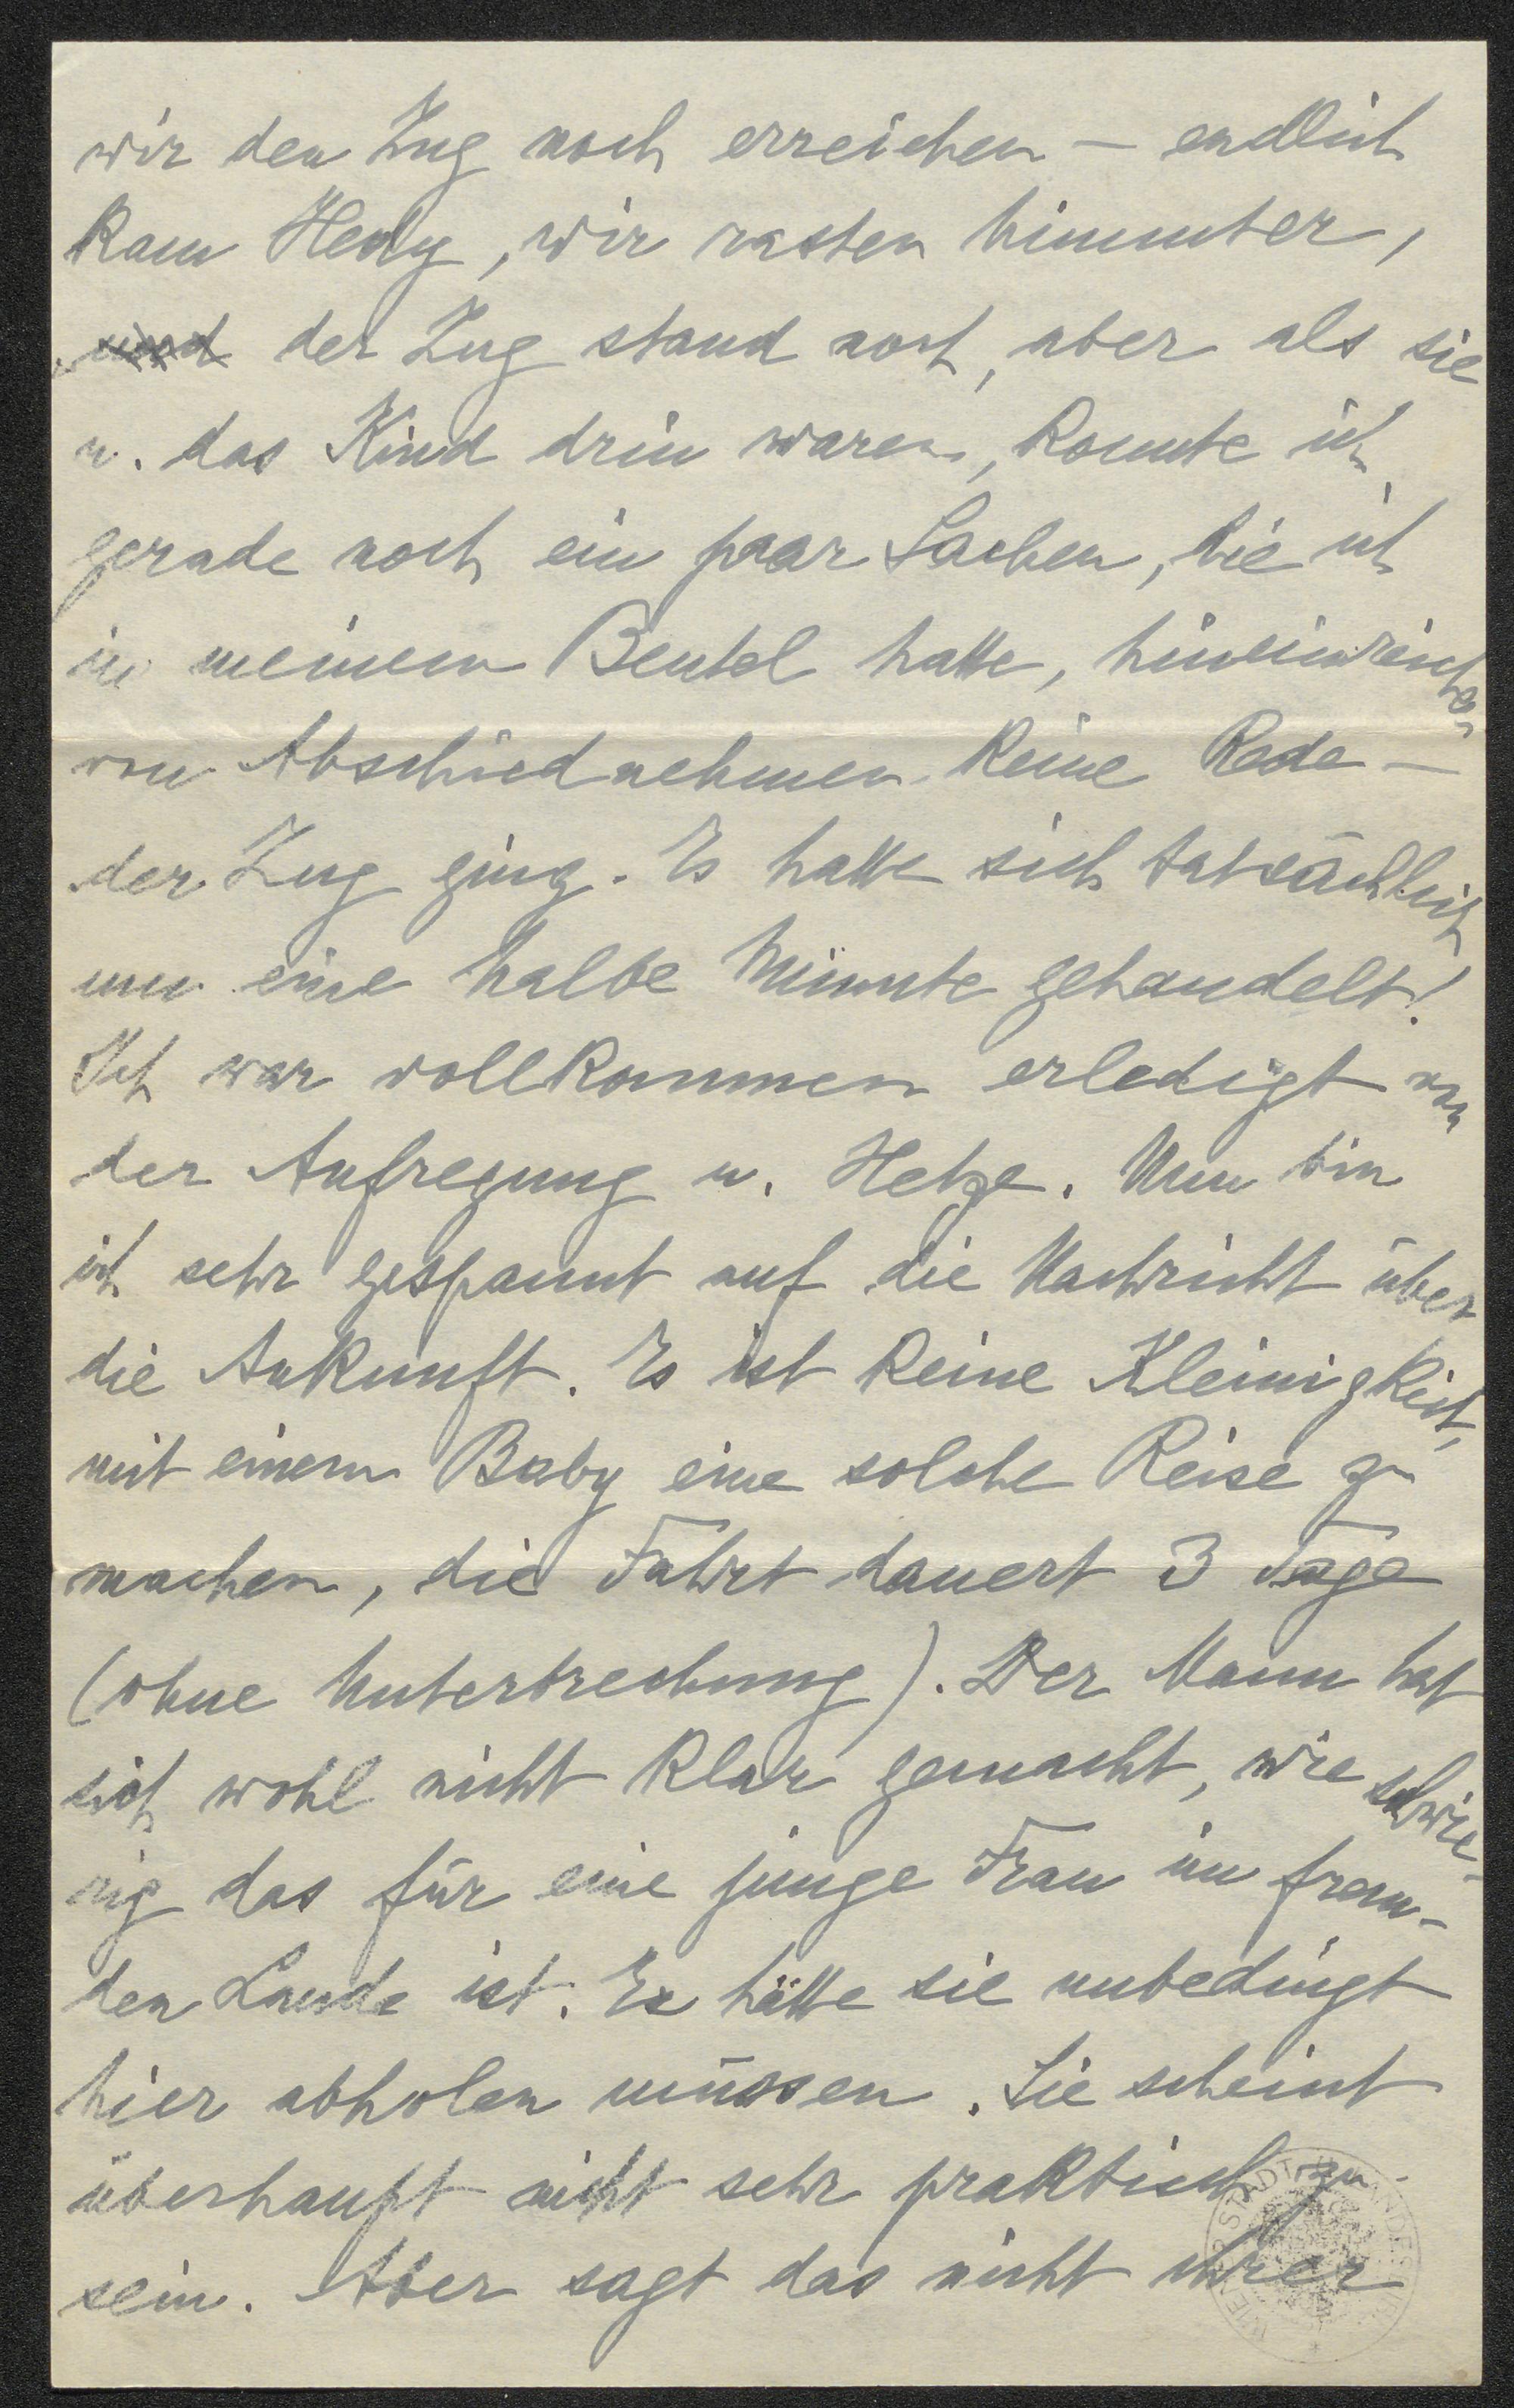 wir den Zug noch erreichen – endlich
kam Hedy, wir rasten hinunter,
und der Zug stand noch, aber als sie
u. das Kind drin waren, konnte ich
gerade noch ein paar Sachen, die ich
in meinem Beutel hatte, hineinreichen
von Abschiednehmen keine Rede –
der Zug ging. Es hatte sich tatsächlich
um eine halbe Minute gehandelt!
Ich war vollkommen erledigt von
der Aufregung u. Hetze. Nun bin
ich sehr gespannt auf die Nachricht über
die Ankunft. Es ist keine Kleinigkeit,
mit einem Baby eine solche Reise zu
machen, die Fahrt dauert 3 Tage
(ohne Unterbrechung). Der Mann hat
sich wohl nicht klar gemacht, wie schwie-
rig das für eine junge Frau im frem-
den Lande ist. Er hätte sie unbedingt
hier abholen müssen. Sie scheint
überhaupt nicht sehr praktisch zu
sein. Aber sagt das nicht ihrer